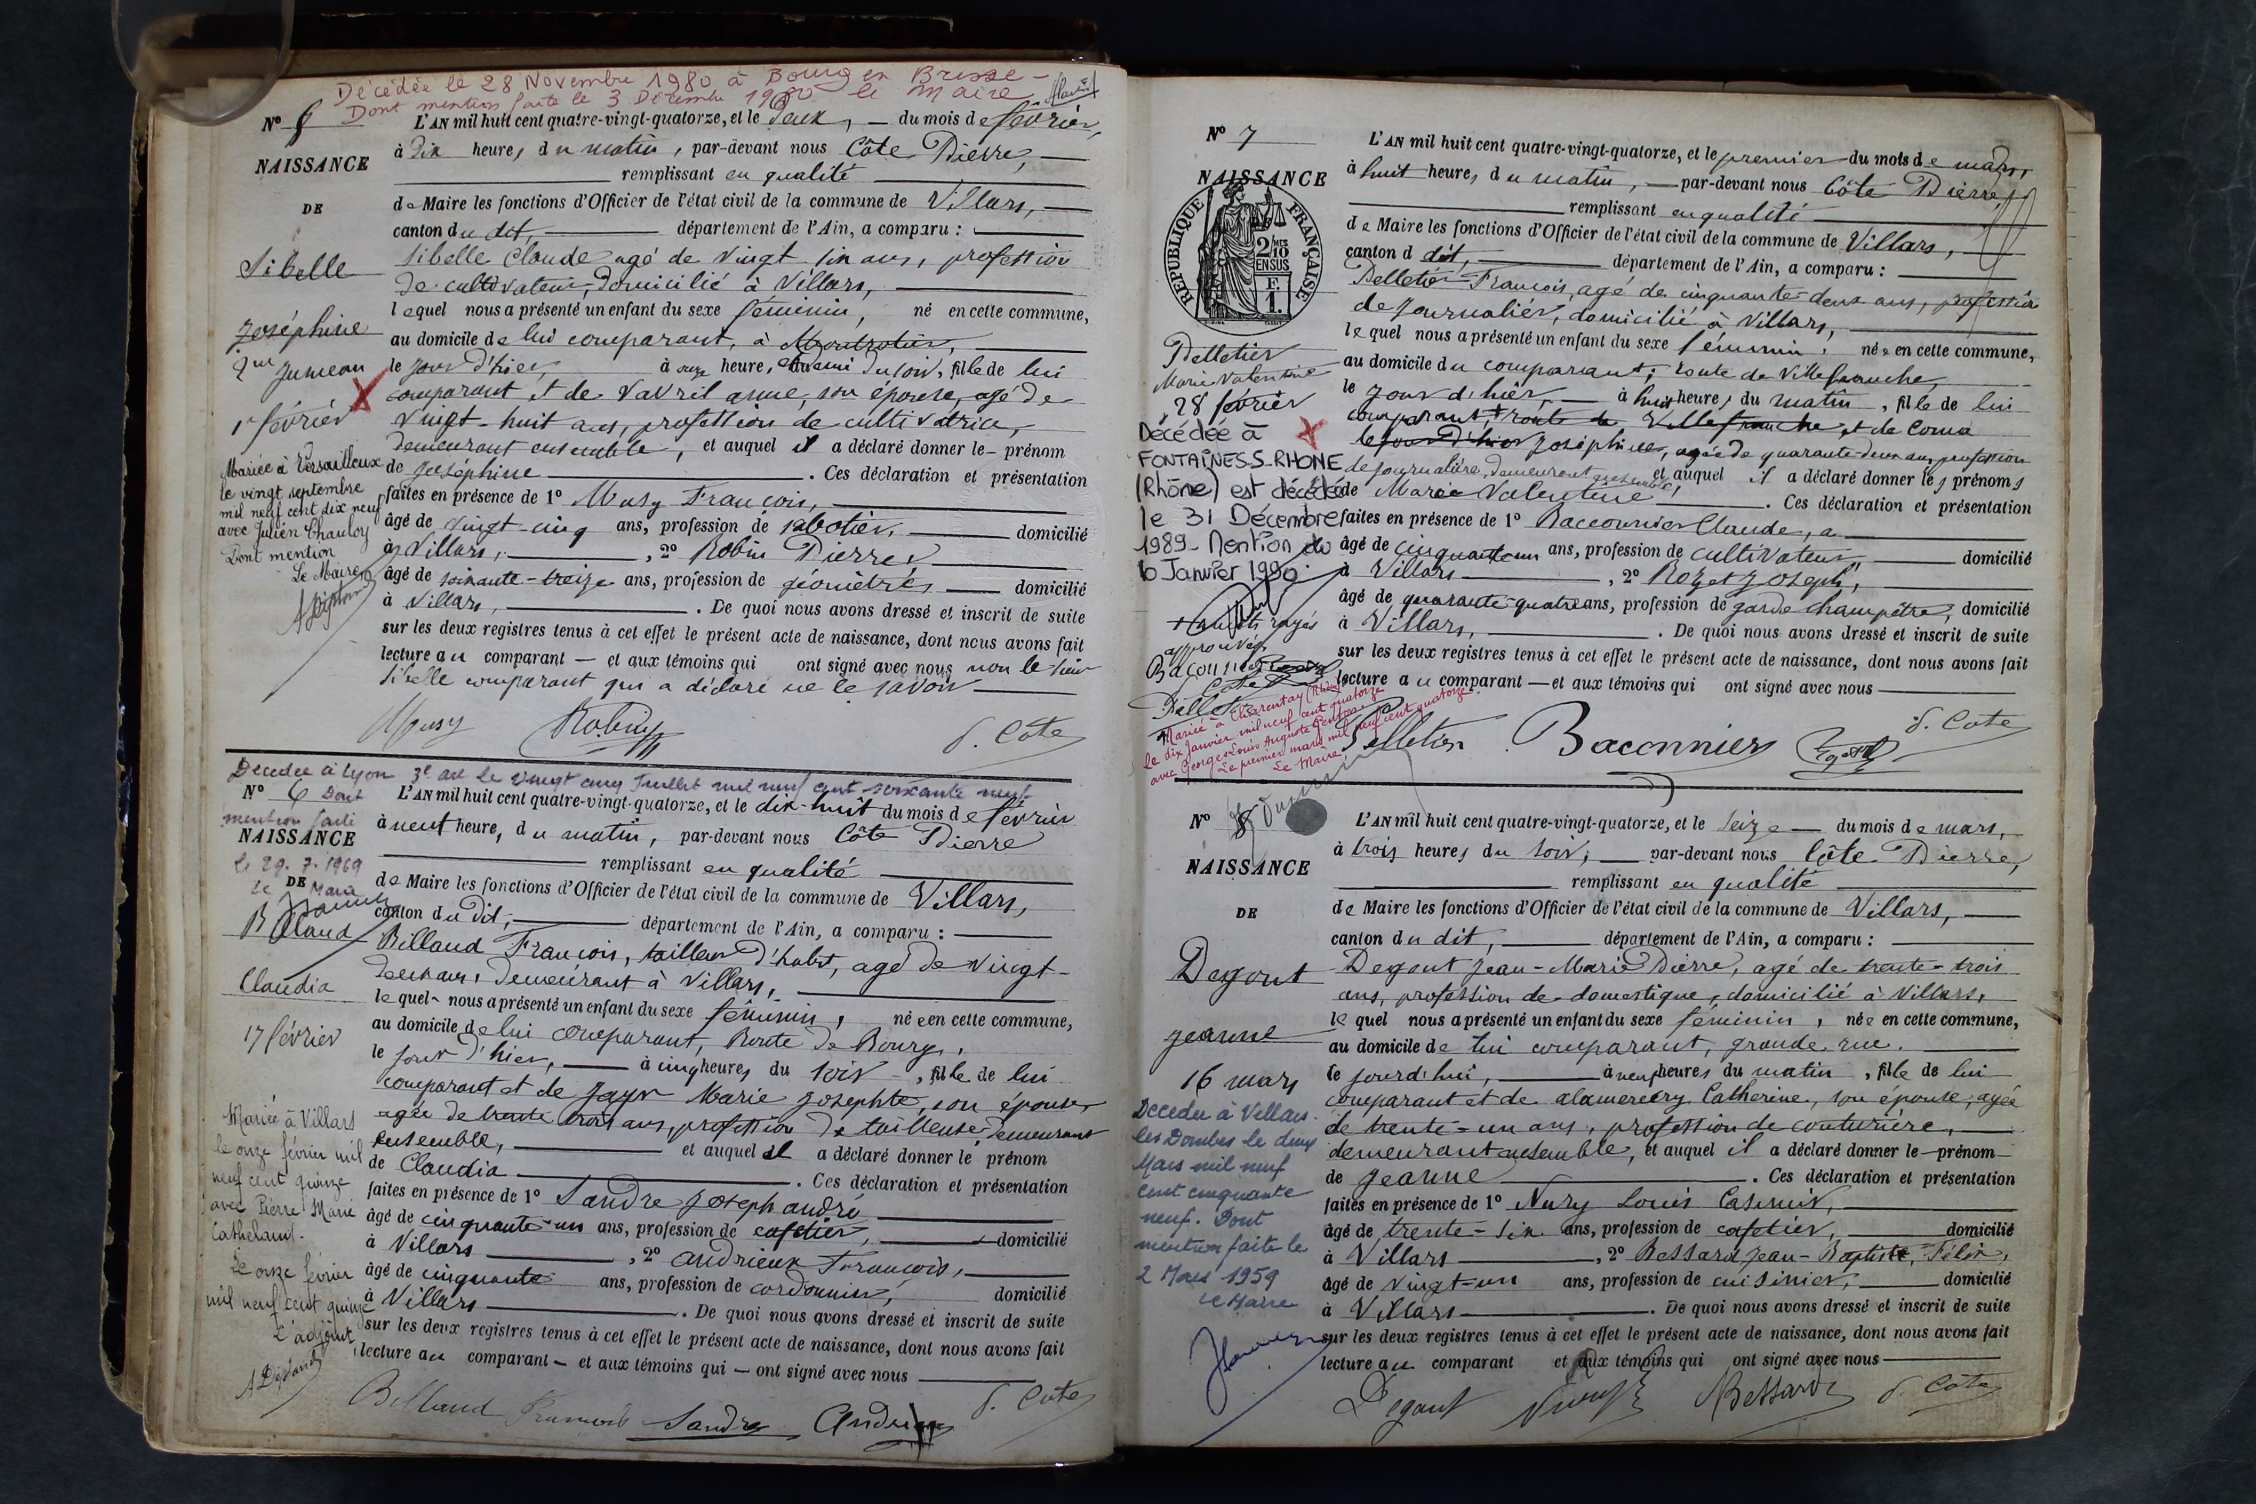 Décédée le 28 Novembre 1980 à Bourg en Bresse -
Dont mention faite le 3 Décembre 1980 le Maire
Nº 5
NAISSANCE
DE
Sibelle
Joséphine
2me Jumeau
1r février
Mariée à Versailleux
le vingt septembre
mil neuf cent dix neuf
avec Julien Chauloy
Dont mention
Le Maire
L'AN mil huit cent quatre-vingt-quatorze, et le deux, — du mois de février,
à dix heures du matin, par-devant nous Côte Pierre,
remplissant en qualité
de Maire les fonctions d'Officier de l'état civil de la commune de Villars,
canton du dit, département de l'Ain, a comparu :
Sibelle Claude agé de vingt six ans, profession
de cultivateur, domicilié à Villars,
lequel nous a présenté un enfant du sexe féminin, né en cette commune,
au domicile de lui comparant, à
le jour d'hier, à onze heure, et demi du soir, fille de lui
comparant et de Vavril anne, son épouse, agé de
vingt-huit ans, profession de cultivatrice,
demeurant ensemble, et auquel il a déclaré donner le prénom
de Joséphine . Ces déclaration et présentation
faites en présence de 1º Musy François,
âgé de vingt-cinq ans, profession de sabotier, domicilié
à Villars, , 2º Robin Pierre
âgé de soixante-treize ans, profession de géomètre domicilié
à Villars, . De quoi nous avons dressé et inscrit de suite
sur les deux registres tenus à cet effet le présent acte de naissance, dont nous avons fait
lecture au comparant — et aux témoins qui ont signé avec nous non le sieur
Sibelle comparant qui a déclaré ne le savoir
Musy Robin P. Côte
Décédée à Lyon 3e arr le vingt cinq Juillet mil neuf cent soixante neuf
Nº 6 Dont
mention faite
NAISSANCE
le 29.7.1969
DE
le Maire
Billaud
Claudia
17 février
Mariée à Villars
le onze février mil
neuf cent quinze
avec Pierre Marie
Catheland.
Le onze février
mil neuf cent quinze
L'adjoint,
L'AN mil huit cent quatre-vingt-quatorze, et le dix-huit du mois de février
à neuf heure, du matin, par-devant nous Côte Pierre
remplissant en qualité
de Maire les fonctions d'Officier de l'état civil de la commune de Villars,
canton du dit, département de l'Ain, a comparu :
Billaud François, tailleur d'habit, agé de vingt-
deux ans, demeurant à Villars,
le quel nous a présenté un enfant du sexe féminin, née en cette commune,
au domicile de lui comparant, Route de Bourg,
le jour d'hier, à cinq heures du soir, fille de lui
comparant et de Jayr Marie Josephte, son épouse,
agée de trente trois ans, profession de tailleuse, demeurant
ensemble, et auquel il a déclaré donner le prénom
de Claudia . Ces déclaration et présentation
faites en présence de 1º Sandre Joseph andré
âgé de cinquante-un ans, profession de cafetier, domicilié
à Villars , 2º andrieux François,
âgé de cinquante ans, profession de cordonnier, domicilié
à Villars . De quoi nous avons dressé et inscrit de suite
sur les deux registres tenus à cet effet le présent acte de naissance, dont nous avons fait
lecture au comparant — et aux témoins qui — ont signé avec nous
Billaud François Sandre Andrieux P. Côte
Nº 7
NAISSANCE
DE
RÉPUBLIQUE FRANÇAISE
2/10 EN SUS
F. 1.
Pelletier
Marie Valentine
28 février
Décédée à
FONTAINES-S-RHONE
(Rhône) est décédée
le 31 Décembre
1989. Mention du
10 Janvier 1990.
mots rayés
approuvés
Mariée à Charentay (Rhône)
le dix janvier mil neuf cent quatorze
avec Georges Louis Auguste
Le premier mars mil neuf cent quatorze
Le Maire,
L'AN mil huit cent quatre-vingt-quatorze, et le premier du mois de mars,
à huit heures du matin, — par-devant nous Côte Pierre,
remplissant en qualité
de Maire les fonctions d'Officier de l'état civil de la commune de Villars,
canton d dit, département de l'Ain, a comparu :
Pelletier François, agé de cinquante-deux ans, profession
de journalier, domicilié à Villars,
le quel nous a présenté un enfant du sexe féminin, née en cette commune,
au domicile du comparant, route de Villefranche,
le jour d'hier, — à huit heures du matin, fille de lui
comparant, + route de Villefranche, et de Coma
le jour d'hier Joséphine, agée de quarante-deux ans, profession
de journalière, demeurant ensemble, et auquel il a déclaré donner les prénoms
de Marie Valentine . Ces déclaration et présentation
faites en présence de 1º Baccounier Claude, a
âgé de cinquante un ans, profession de cultivateur, domicilié
à Villars , 2º Rozet Joseph,
âgé de quarante-quatre ans, profession de garde champêtre, domicilié
à Villars, . De quoi nous avons dressé et inscrit de suite
sur les deux registres tenus à cet effet le présent acte de naissance, dont nous avons fait
lecture au comparant — et aux témoins qui ont signé avec nous
Pelletier Baconnier P. Côte
Nº 8
NAISSANCE
DE
Degout
Jeanne
16 mars
Décédée à Villars-
les Dombes le deux
Mars mil neuf
cent cinquante
neuf. Dont
mention faite le
2 Mars 1959
Le Maire
L'AN mil huit cent quatre-vingt-quatorze, et le seize — du mois de mars,
à trois heures du soir, — par-devant nous Côte Pierre,
remplissant en qualité
de Maire les fonctions d'Officier de l'état civil de la commune de Villars,
canton du dit, département de l'Ain, a comparu :
Degout Jean-Marie Pierre, agé de trente-trois
ans, profession de domestique, domicilié à Villars,
le quel nous a présenté un enfant du sexe féminin, née en cette commune,
au domicile de lui comparant, grande rue.
le jourd'hui, à neuf heures du matin, fille de lui
comparant et de alamercery Catherine, son épouse, agée
de trente-un ans, profession de couturière,
demeurant ensemble, et auquel il a déclaré donner le prénom
de Jeanne . Ces déclaration et présentation
faites en présence de 1º Nury Louis Casimir,
âgé de trente-six ans, profession de cafetier, domicilié
à Villars , 2º Bessard Jean-Baptiste, Félix,
âgé de vingt-un ans, profession de cuisinier, domicilié
à Villars . De quoi nous avons dressé et inscrit de suite
sur les deux registres tenus à cet effet le présent acte de naissance, dont nous avons fait
lecture au comparant et aux témoins qui ont signé avec nous
Degout Nury Bessard P. Côte